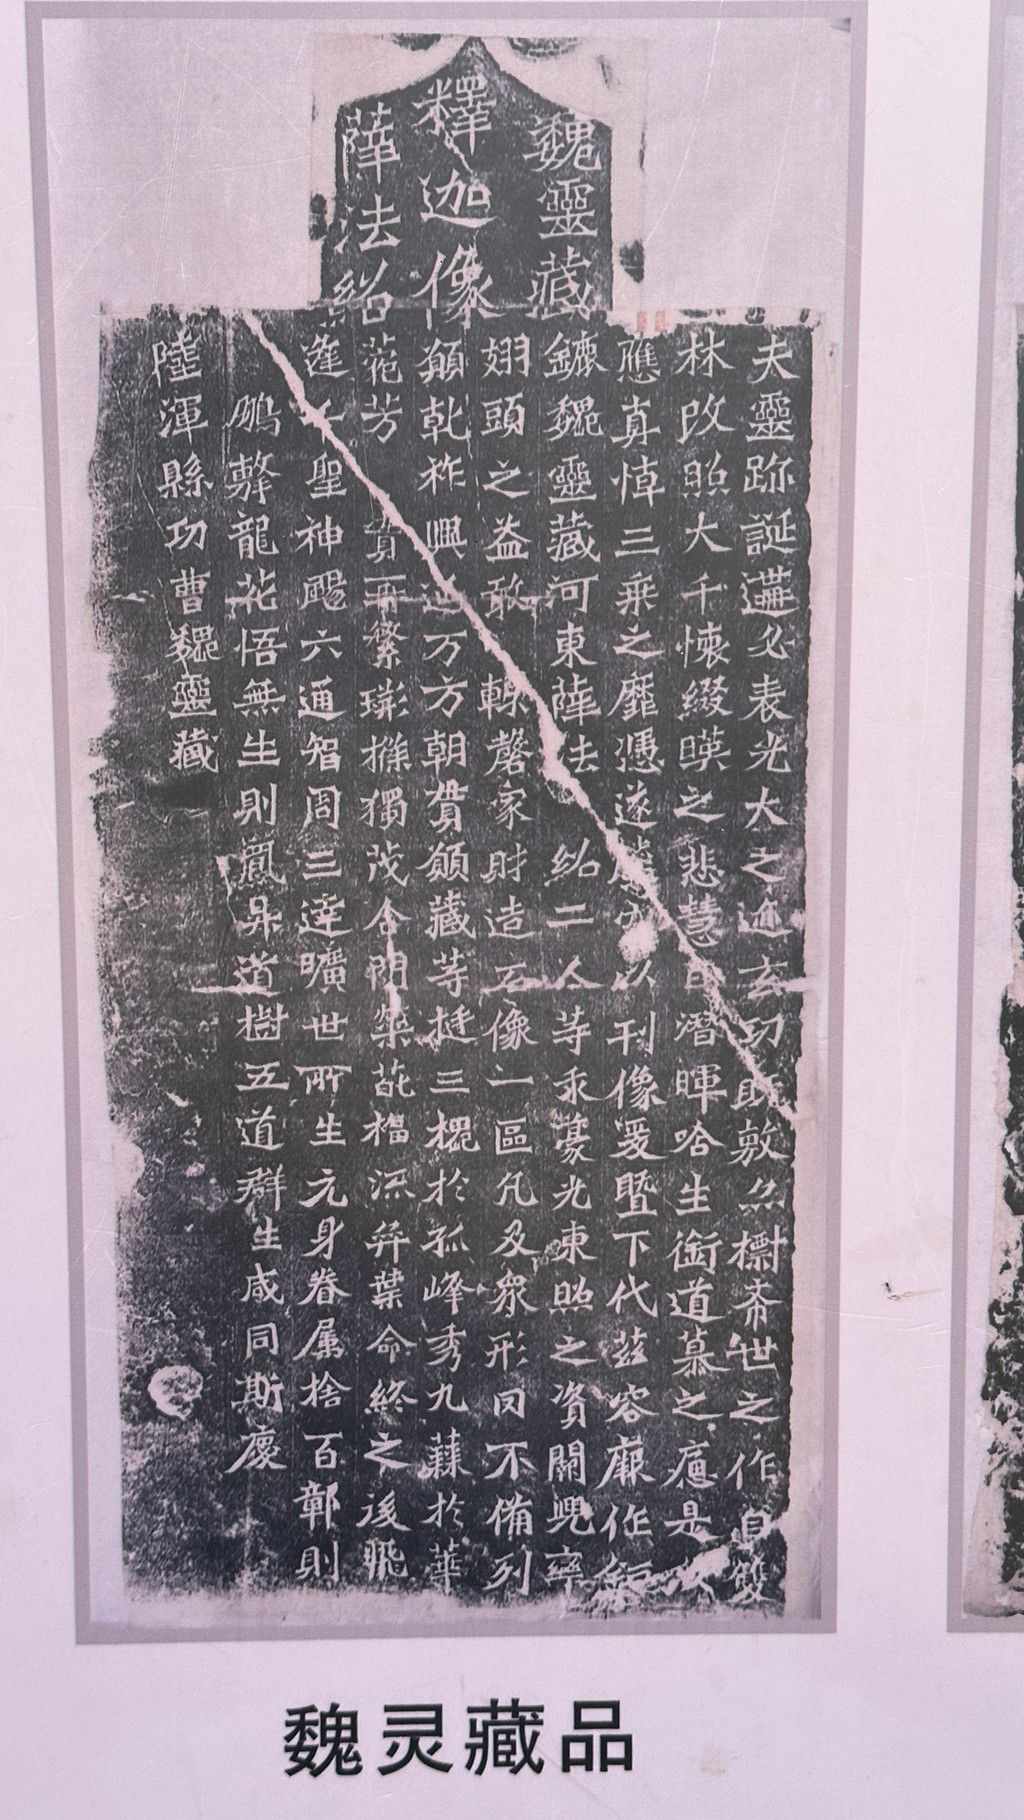 魏靈藏
釋迦像
薛法紹
夫靈跡誕遘必表光大之迹玄功既敷亦標希世之作自雙
林改照大千懷綴暎之悲慧日潛暉哈生銜道慕之應是以
應真悼三乘之靡憑遂騰空以刊像爰暨下代茲容厥作鉅
鏕魏靈藏河東薛法紹二人等求豪光東照之資闕兜率
翅頭之益敢輒磬家財造石像一區凡及眾形罔不備列
願乾祚興延万方朝貫願藏等挺三槐於孤峰秀九蕀於華
菀芳實再繁荊條獨茂合門榮葩福流奕葉命終之後飛
逢千聖神颺六通智周三達曠世所生元身眷屬捨百鄣則
鵬擊龍花悟無生則鳳昇道樹五道群生咸同斯慶
陸渾縣功曹魏靈藏
魏灵藏品